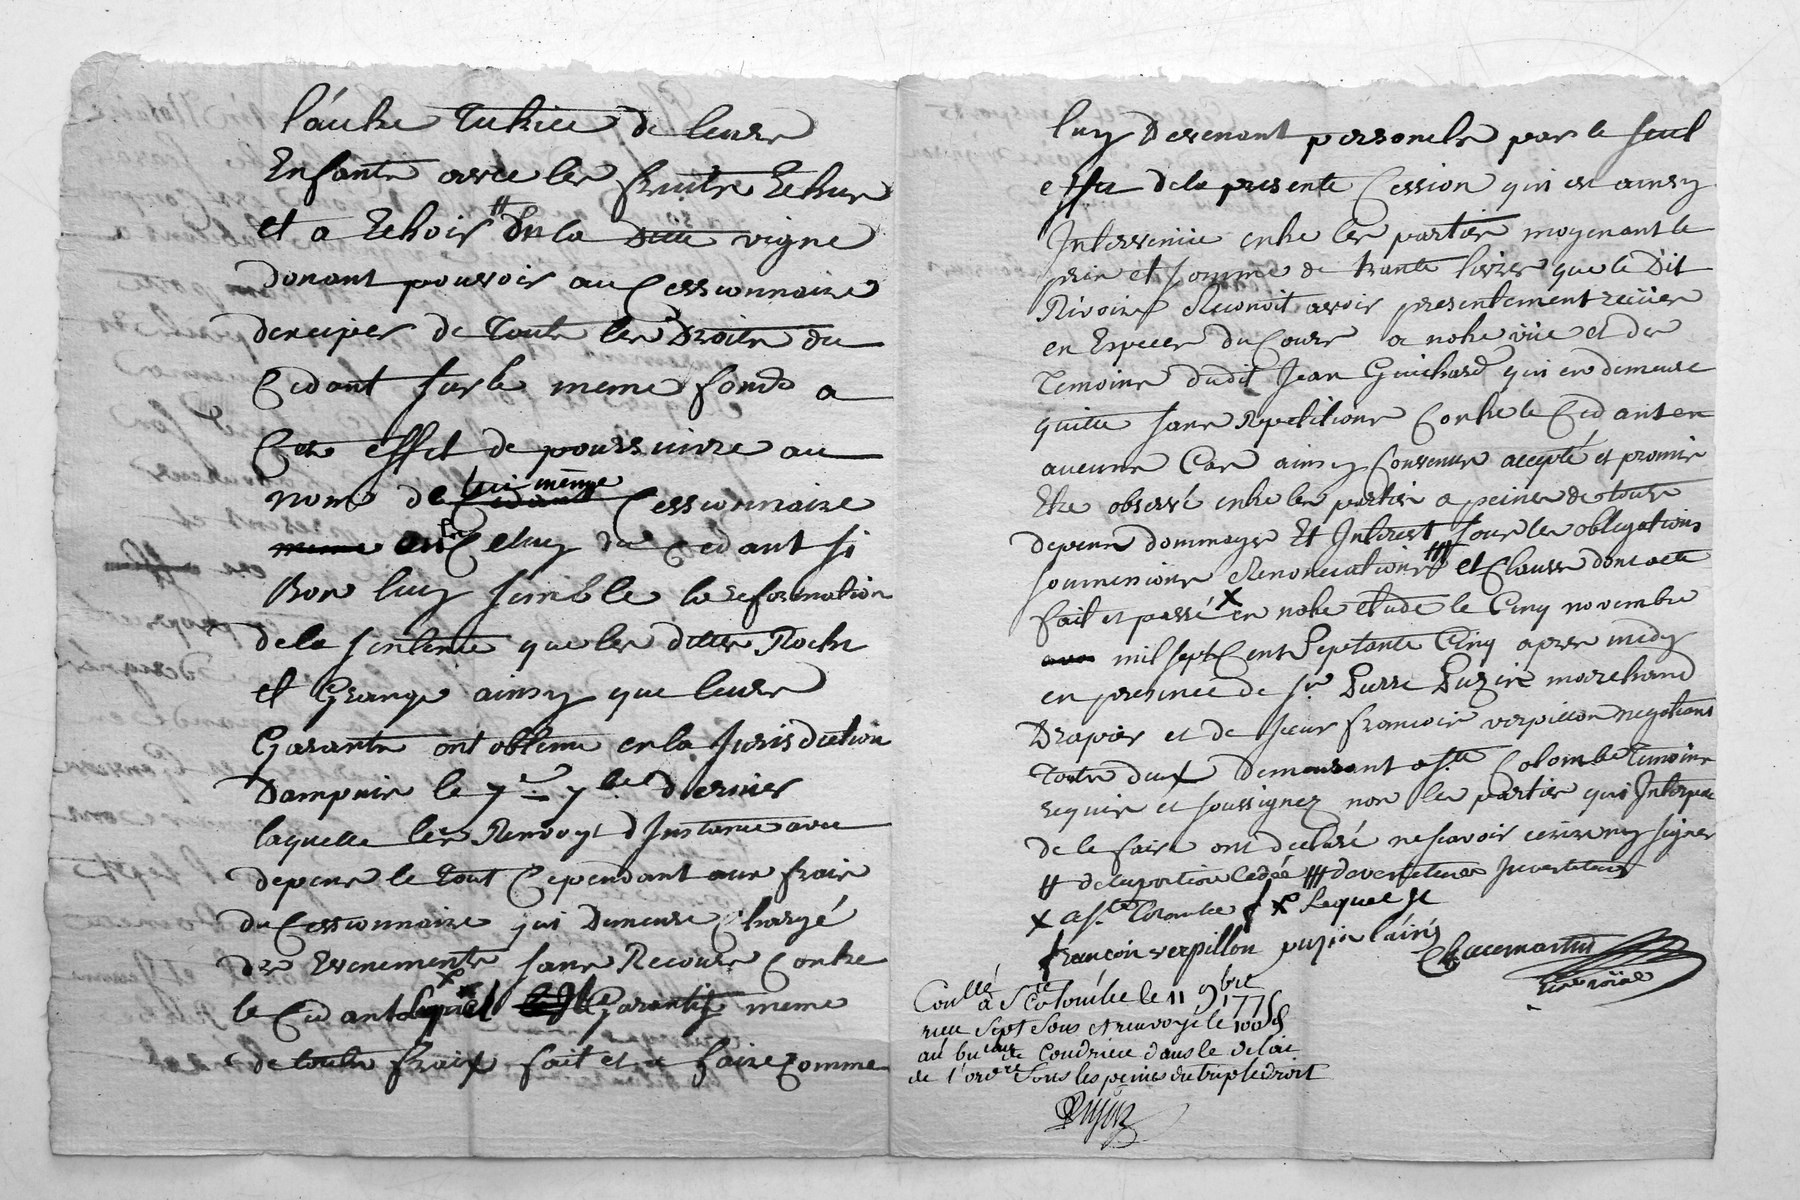 l'autre tutrice de leurs
Enfants avec les fruits Echus
et a Echoir # De la Ditte vigne
donant pouvoir au Cessionnaire
de reciper de toute les Droits du
Cedant sur le meme fond a
Cet effet de poursuivre au
nom de Cedant lui même Cessionnaire
meme ou Celuy du Cedant si
Bon luy semble la reformation
de la sentence que les dittes Roche
et Grange ainsy que leurs
Garants ont obtenu en la Jurisdiction
Dampuis le 7e 7bre dernier
laquelle les Renvoyt d'Instance avec
depens le tout Cependant aux frais
du Cessionnaire qui Demeure Chargé
des Evenements sans Recours Contre
le Cedant Lequel x le Garantit meme
de toute fraix fait et a faire Comme
luy Devenant personels par le seul
effet de la presente Cession qui est ainsy
Intervenüe entre les parties moyenant le
prix et somme de trante livres que le Dit
Rivoire Reconoit avoir presentement reçües
en Especes du Cours a notre vüe et des
Temoins dudit Jean Guichard qui en demeure
quitte sans Repetitions Contre le Cedant en
aucuns Cas ainsy Convenus accepté et promis
Etre observé entre les parties a peines de tous
depens dommages Et Interest sous les obligations
soumissions Renonciations ### et Clauses dont acte
fait et passé x en notre etude le Cinq novembre
mil sept Cent Septante Cinq apres midy
en presence de sr. Pierre Puzin marchand
Drapier et de sieur francois verpillon negotiant
Toute deux Demeurant a Ste Colombe Temoins
requis et soussignez non les parties qui Interpelé
de le faire ont declaré ne scavoir ecrire ny signer
# de la portion Cedée ### devestitures Investitures
x a Ste Colombe x Lequel Je
francois verpillon puzin l'ainé
Chacemartin
Nre roïal
Conllé a Ste Colombe le 11 9bre 1775
reçu Sept Sous et renvoyé le 100e d.
au bureau de Condrieu dans le delai
de l'ordce Sous les peines du triple droit
Puzin